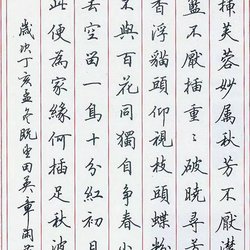 芙蓉妙属秋芳不厭
籃不厭插重重破曉尋芳
香浮貓頭仰視枝頭蝶粉
不與百花同獨自爭春小
空留一鳥十分紅初日
此便為家緣何插足秋波
歲次丁亥孟冬晚生田英章